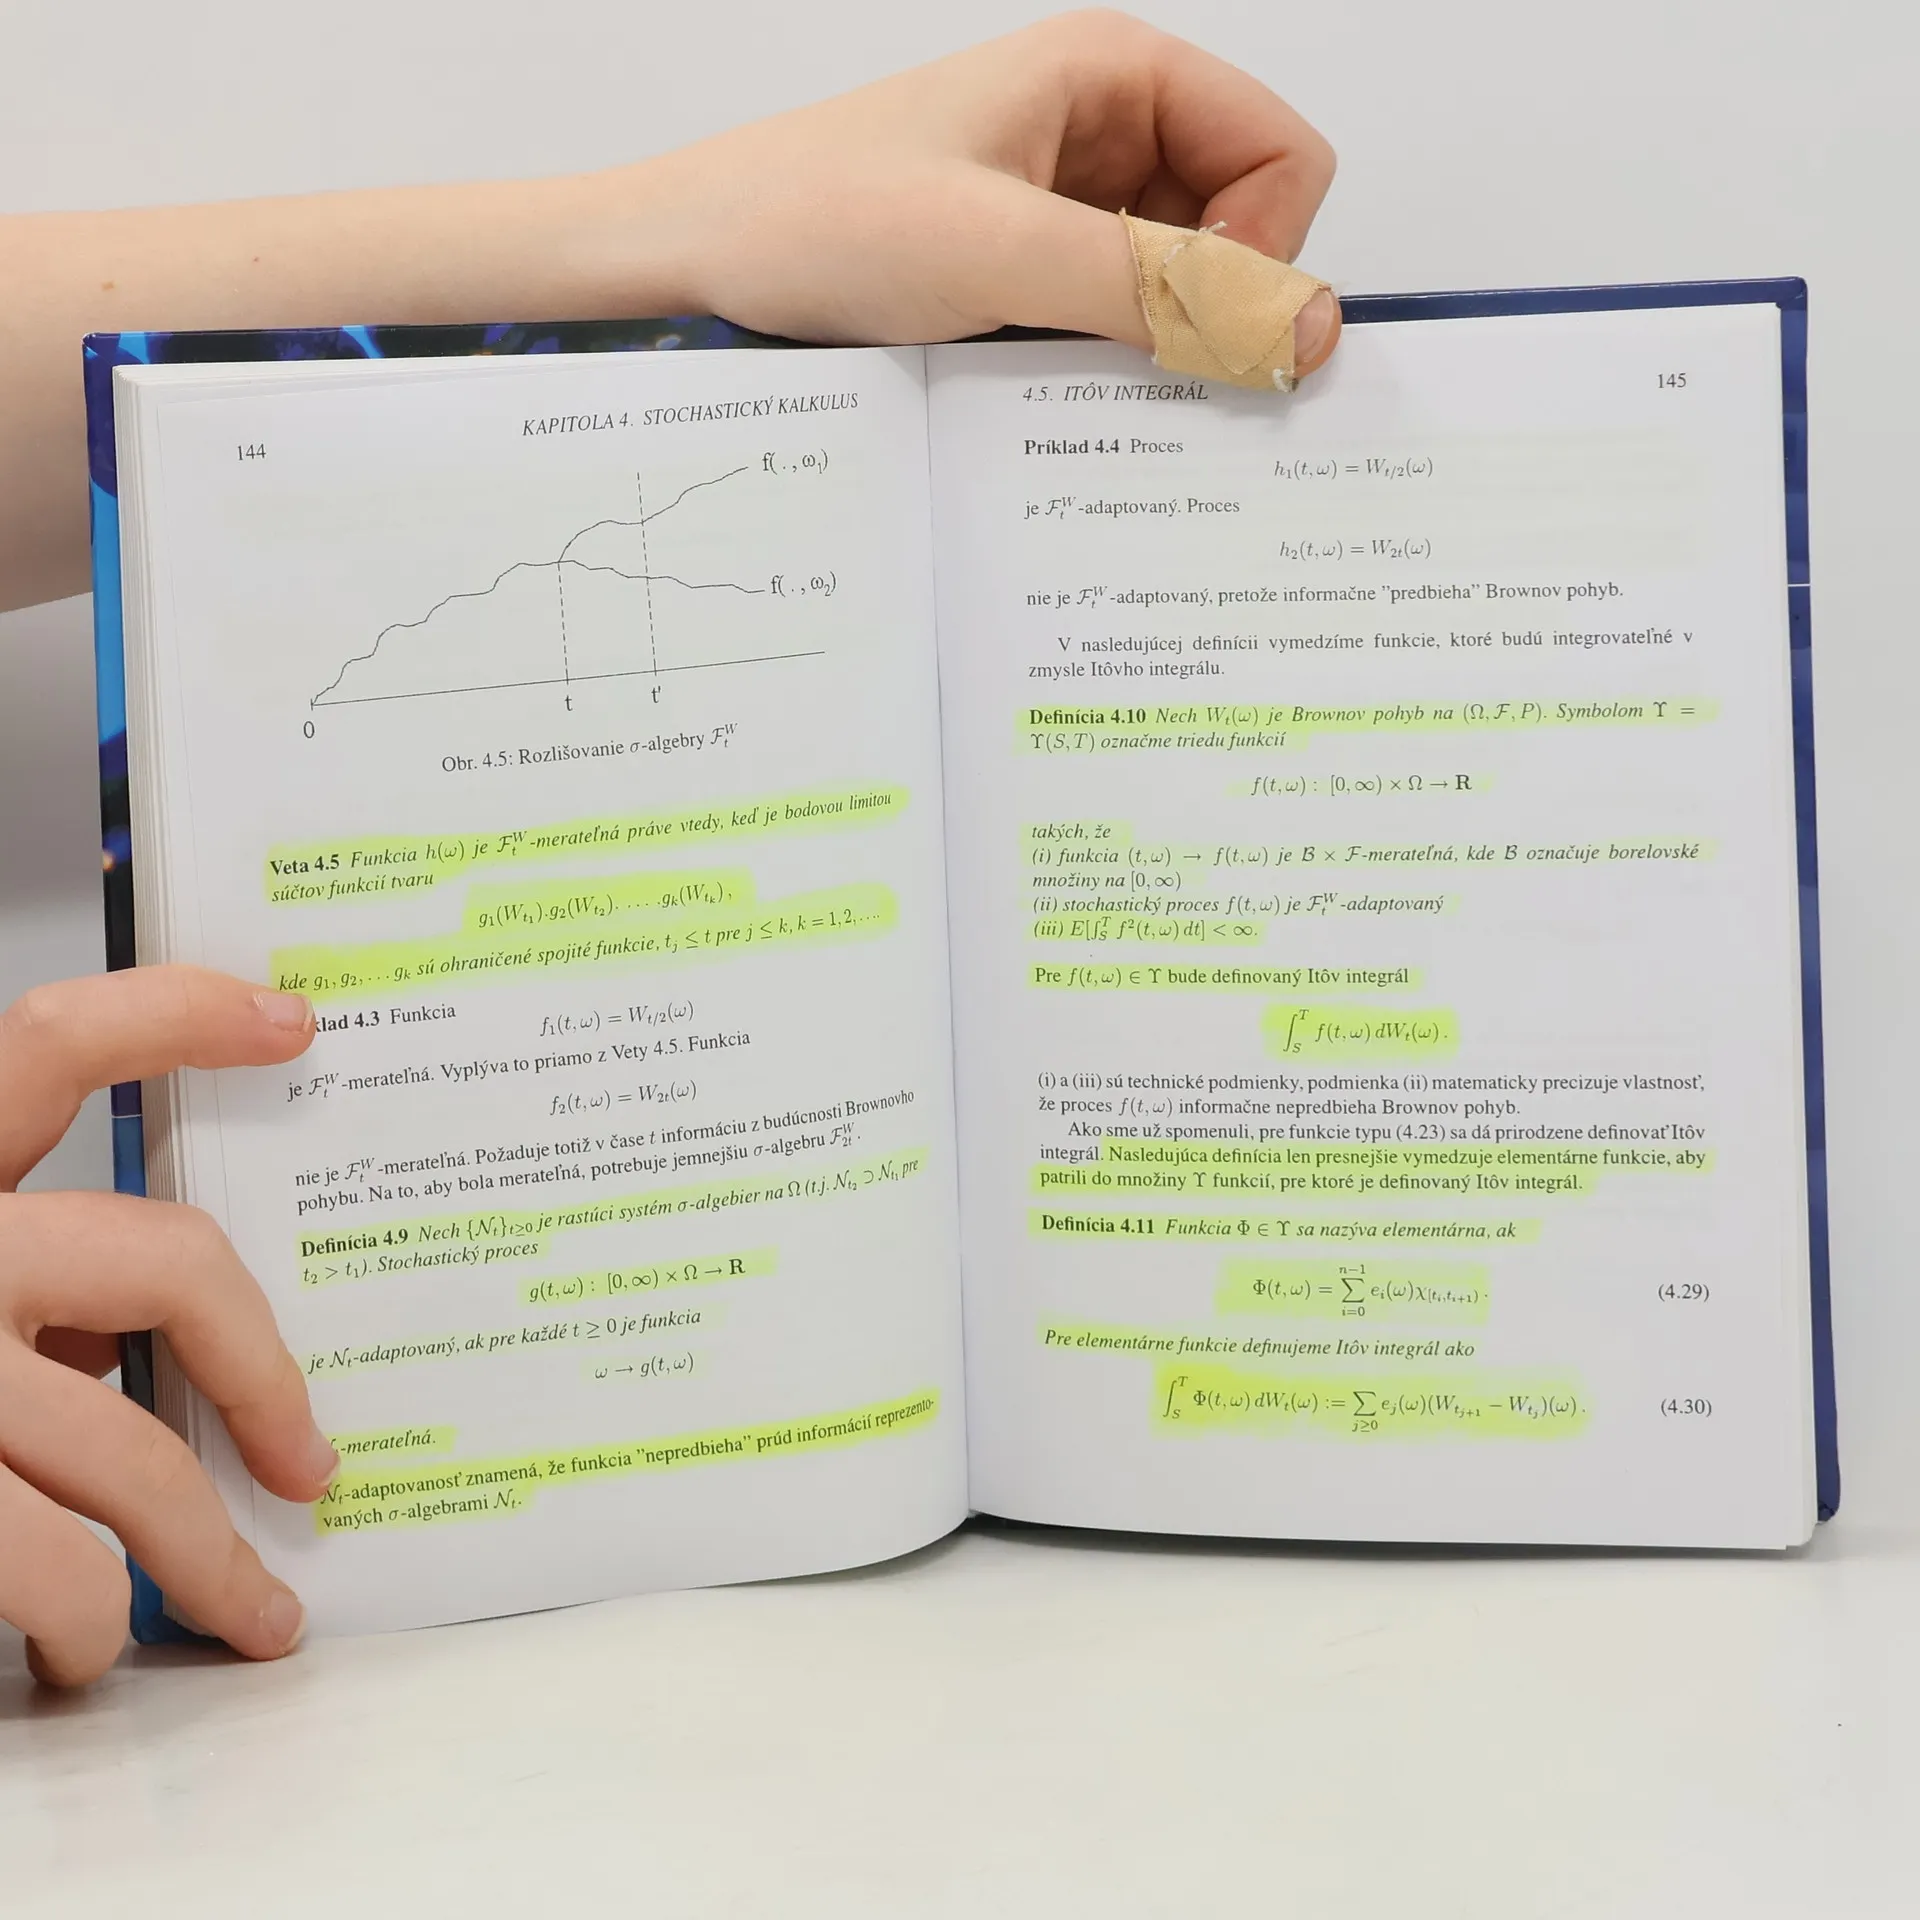 144
KAPITOLA 4. STOCHASTICKÝ KALKULUS
f( . , ω₁)
f( . , ω₂)
0
t
t'
Obr. 4.5: Rozlišovanie σ-algebry ℱₜᵂ
Veta 4.5 Funkcia h(ω) je ℱₜᵂ-merateľná práve vtedy, keď je bodovou limitou
súčtov funkcií tvaru
g₁(W_{t₁}).g₂(W_{t₂}). . . . .gₖ(W_{tₖ}),
kde g₁, g₂, . . . gₖ sú ohraničené spojité funkcie, tⱼ ≤ t pre j ≤ k, k = 1, 2, . . . .
klad 4.3 Funkcia
f₁(t, ω) = W_{t/2}(ω)
je ℱₜᵂ-merateľná. Vyplýva to priamo z Vety 4.5. Funkcia
f₂(t, ω) = W_{2t}(ω)
nie je ℱₜᵂ-merateľná. Požaduje totiž v čase t informáciu z budúcnosti Brownovho
pohybu. Na to, aby bola merateľná, potrebuje jemnejšiu σ-algebru ℱ_{2t}ᵂ.
Definícia 4.9 Nech {𝒩ₜ}_{t≥0} je rastúci systém σ-algebier na Ω (t.j. 𝒩_{t₂} ⊃ 𝒩_{t₁} pre
t₂ > t₁). Stochastický proces
g(t, ω) : [0, ∞) × Ω → R
je 𝒩ₜ-adaptovaný, ak pre každé t ≥ 0 je funkcia
ω → g(t, ω)
-merateľná.
𝒩ₜ-adaptovanosť znamená, že funkcia ”nepredbieha” prúd informácií reprezento-
vaných σ-algebrami 𝒩ₜ.
4.5. ITÔV INTEGRÁL
145
Príklad 4.4 Proces
h₁(t, ω) = W_{t/2}(ω)
je ℱₜᵂ-adaptovaný. Proces
h₂(t, ω) = W_{2t}(ω)
nie je ℱₜᵂ-adaptovaný, pretože informačne ”predbieha” Brownov pohyb.
V nasledujúcej definícii vymedzíme funkcie, ktoré budú integrovateľné v
zmysle Itôvho integrálu.
Definícia 4.10 Nech Wₜ(ω) je Brownov pohyb na (Ω, ℱ, P). Symbolom ϒ =
ϒ(S, T) označme triedu funkcií
f(t, ω) : [0, ∞) × Ω → R
takých, že
(i) funkcia (t, ω) → f(t, ω) je ℬ × ℱ-merateľná, kde ℬ označuje borelovské
množiny na [0, ∞)
(ii) stochastický proces f(t, ω) je ℱₜᵂ-adaptovaný
(iii) E[∫_S^T f²(t, ω) dt] < ∞.
Pre f(t, ω) ∈ ϒ bude definovaný Itôv integrál
∫_S^T f(t, ω) dWₜ(ω) .
(i) a (iii) sú technické podmienky, podmienka (ii) matematicky precizuje vlastnosť,
že proces f(t, ω) informačne nepredbieha Brownov pohyb.
Ako sme už spomenuli, pre funkcie typu (4.23) sa dá prirodzene definovať Itôv
integrál. Nasledujúca definícia len presnejšie vymedzuje elementárne funkcie, aby
patrili do množiny ϒ funkcií, pre ktoré je definovaný Itôv integrál.
Definícia 4.11 Funkcia Φ ∈ ϒ sa nazýva elementárna, ak
Φ(t, ω) = ∑_{i=0}^{n−1} eᵢ(ω)χ_{[tᵢ,tᵢ₊₁)} . (4.29)
Pre elementárne funkcie definujeme Itôv integrál ako
∫_S^T Φ(t, ω) dWₜ(ω) := ∑_{j≥0} eⱼ(ω)(W_{tⱼ₊₁} − W_{tⱼ})(ω) . (4.30)